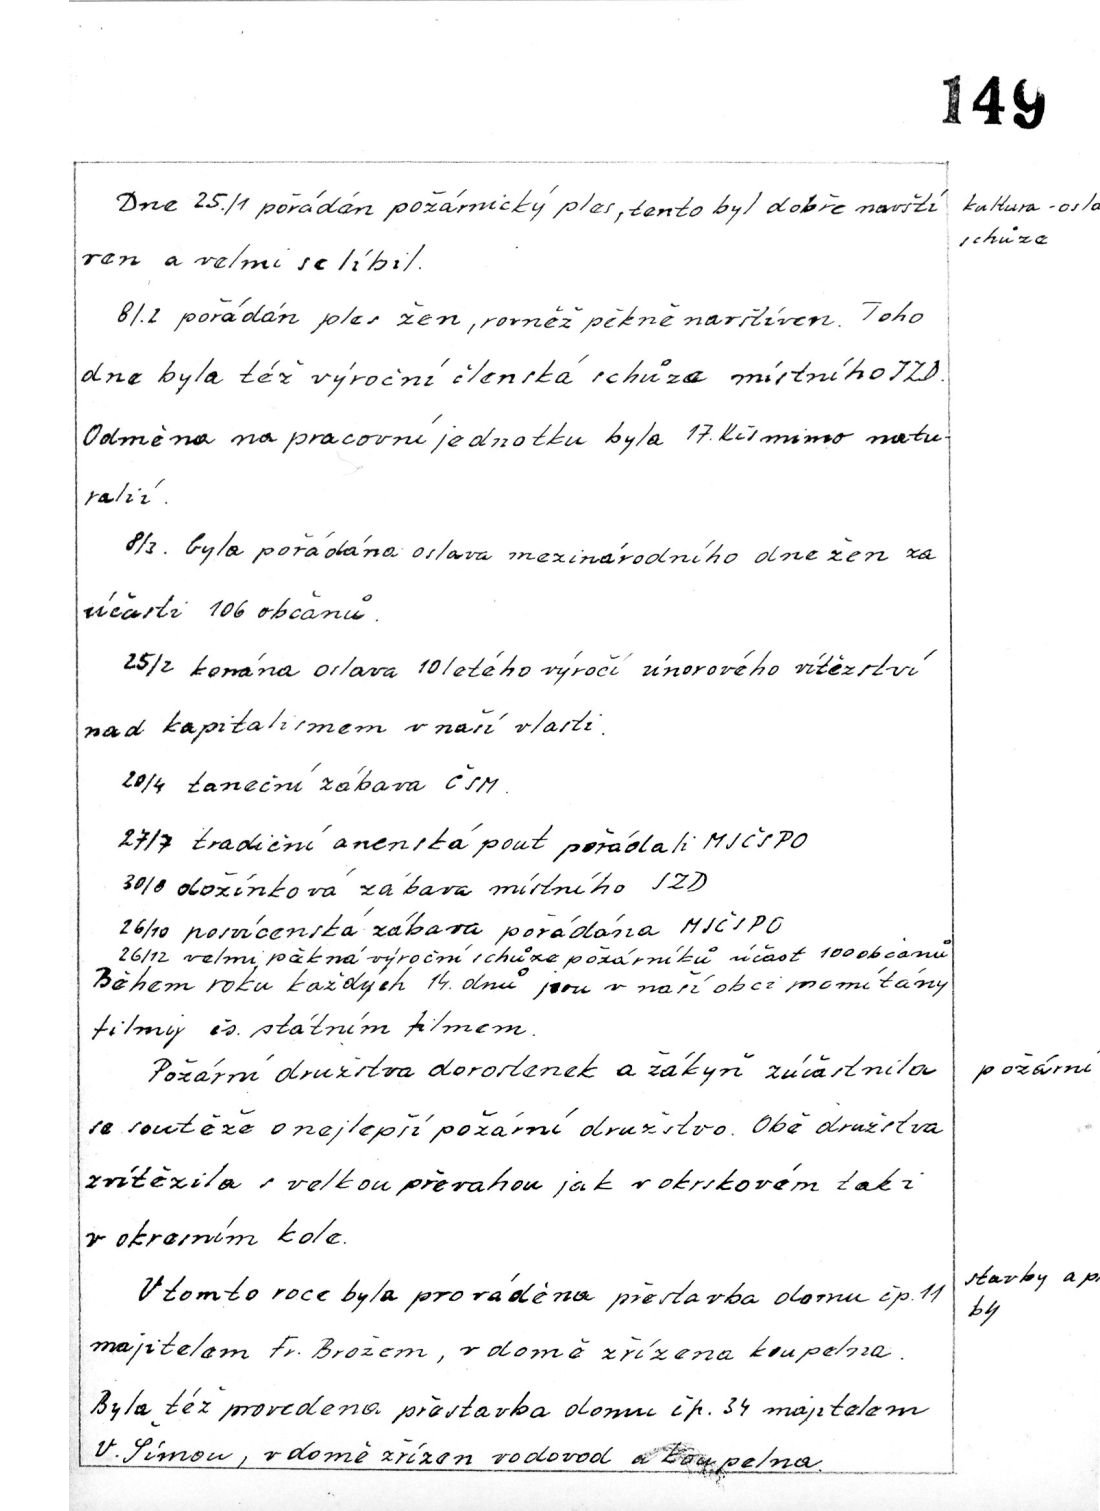 149
Dne 25./1 pořádán požárnický ples, tento byl dobře navští
kultura - osla
schůze
ven a velmi se líbil.
8/.2 pořádán ples žen, rovněž pěkně navštíven. Toho
dne byla též výroční členská schůze místního JZD.
Odměna na pracovní jednotku byla 17. Kčs mimo natu-
ralií.
8/3. byla pořádána oslava mezinárodního dne žen za
účasti 106 občanů.
25/2 konána oslava 10letého výročí únorového vítězství
nad kapitalismem v naší vlasti.
20/4 taneční zábava ČSM.
27/7 tradiční anenská pout pořádali MSČSPO
30/8 dožínková zábava místního JZD
26/10 posvícenská zábava pořádána MSČSPO
26/12 velmi pěkná výroční schůze požárníků účast 100 občanů
Během roku každých 14. dnů jsou v naší obci promítány
filmy čs. státním filmem.
Požární družstva dorostenek a žákyň zúčastnila
požární
se soutěže o nejlepší požární družstvo. Obě družstva
zvítězila s velkou převahou jak v okrskovém tak i
v okresním kole.
V tomto roce byla prováděna přestavba domu čp. 11
stavby a př
by
majitelem Fr. Brožem, v domě zřízena koupelna.
Byla též provedena přestavba domu čp. 34 majitelem
V. Šímou, v domě zřízen vodovod a koupelna.